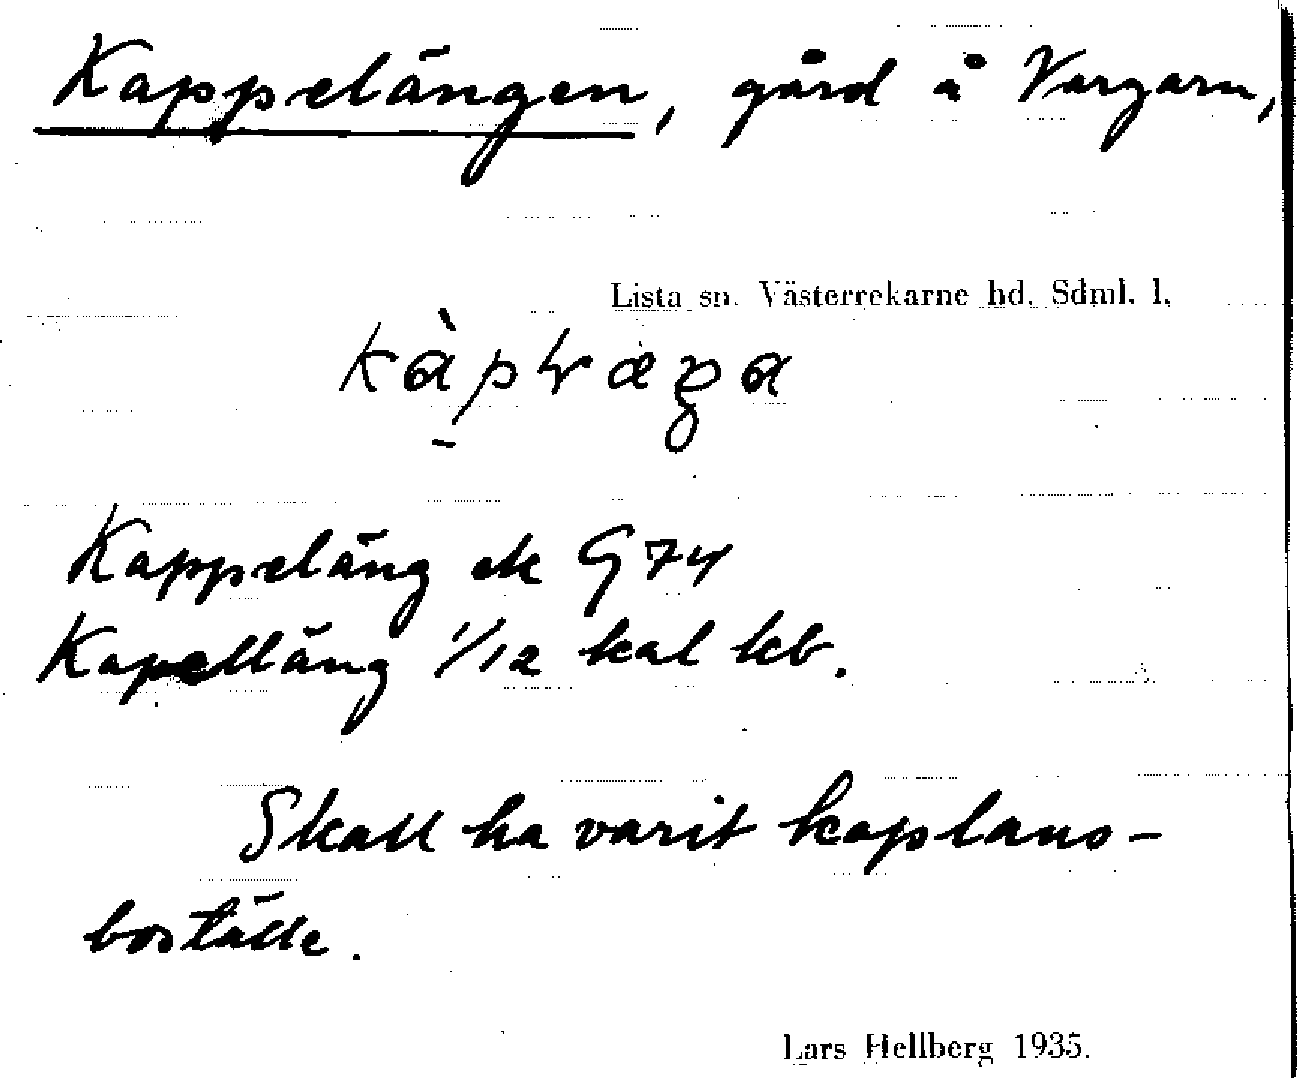 Kappelängen, gård å Vargarn,
Lista sn. Västerrekarne hd. Sdml. l.
Kappeläng ek G 74
Kapelläng 1/12 kal kb.
Skall ha varit kaplans-
boställe.
Lars Hellberg 1935.